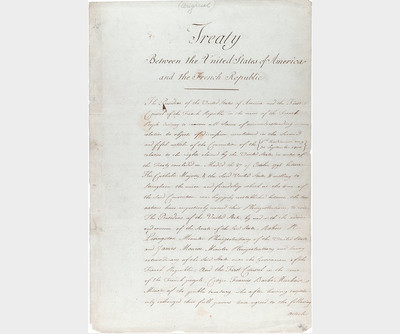 (Original)
Treaty
Between the United States of America
and the French Republic
The President of the United States of America and the First
Consul of the French Republic in the name of the French
People desiring to remove all Source of misunderstanding
relative to objects of discussion mentioned in the Second
and fifth articles of the Convention of the
relative to the rights claimed by the United States in virtue of
the Treaty concluded at Madrid the 27 of October 1795, between
His Catholic Majesty & the Said United States, & willing to
Strengthen the union and friendship which at the time of
the Said Convention was happily reestablished between the two
nations have respectively named their Plenipotentiaries to wit
The President of the United States, by and with the advice
and consent of the Senate of the Said States; Robert R.
Livingston Minister Plenipotentiary of the United States
and James Monroe Minister Plenipotentiary and Envoy
extraordinary of the Said States near the Government of the
French Republic; And the First Consul in the name
of the French people, Citizen Francis Barbé Marbois
Minister of the public treasury who after having
exchanged their full powers have agreed to the following
Articles